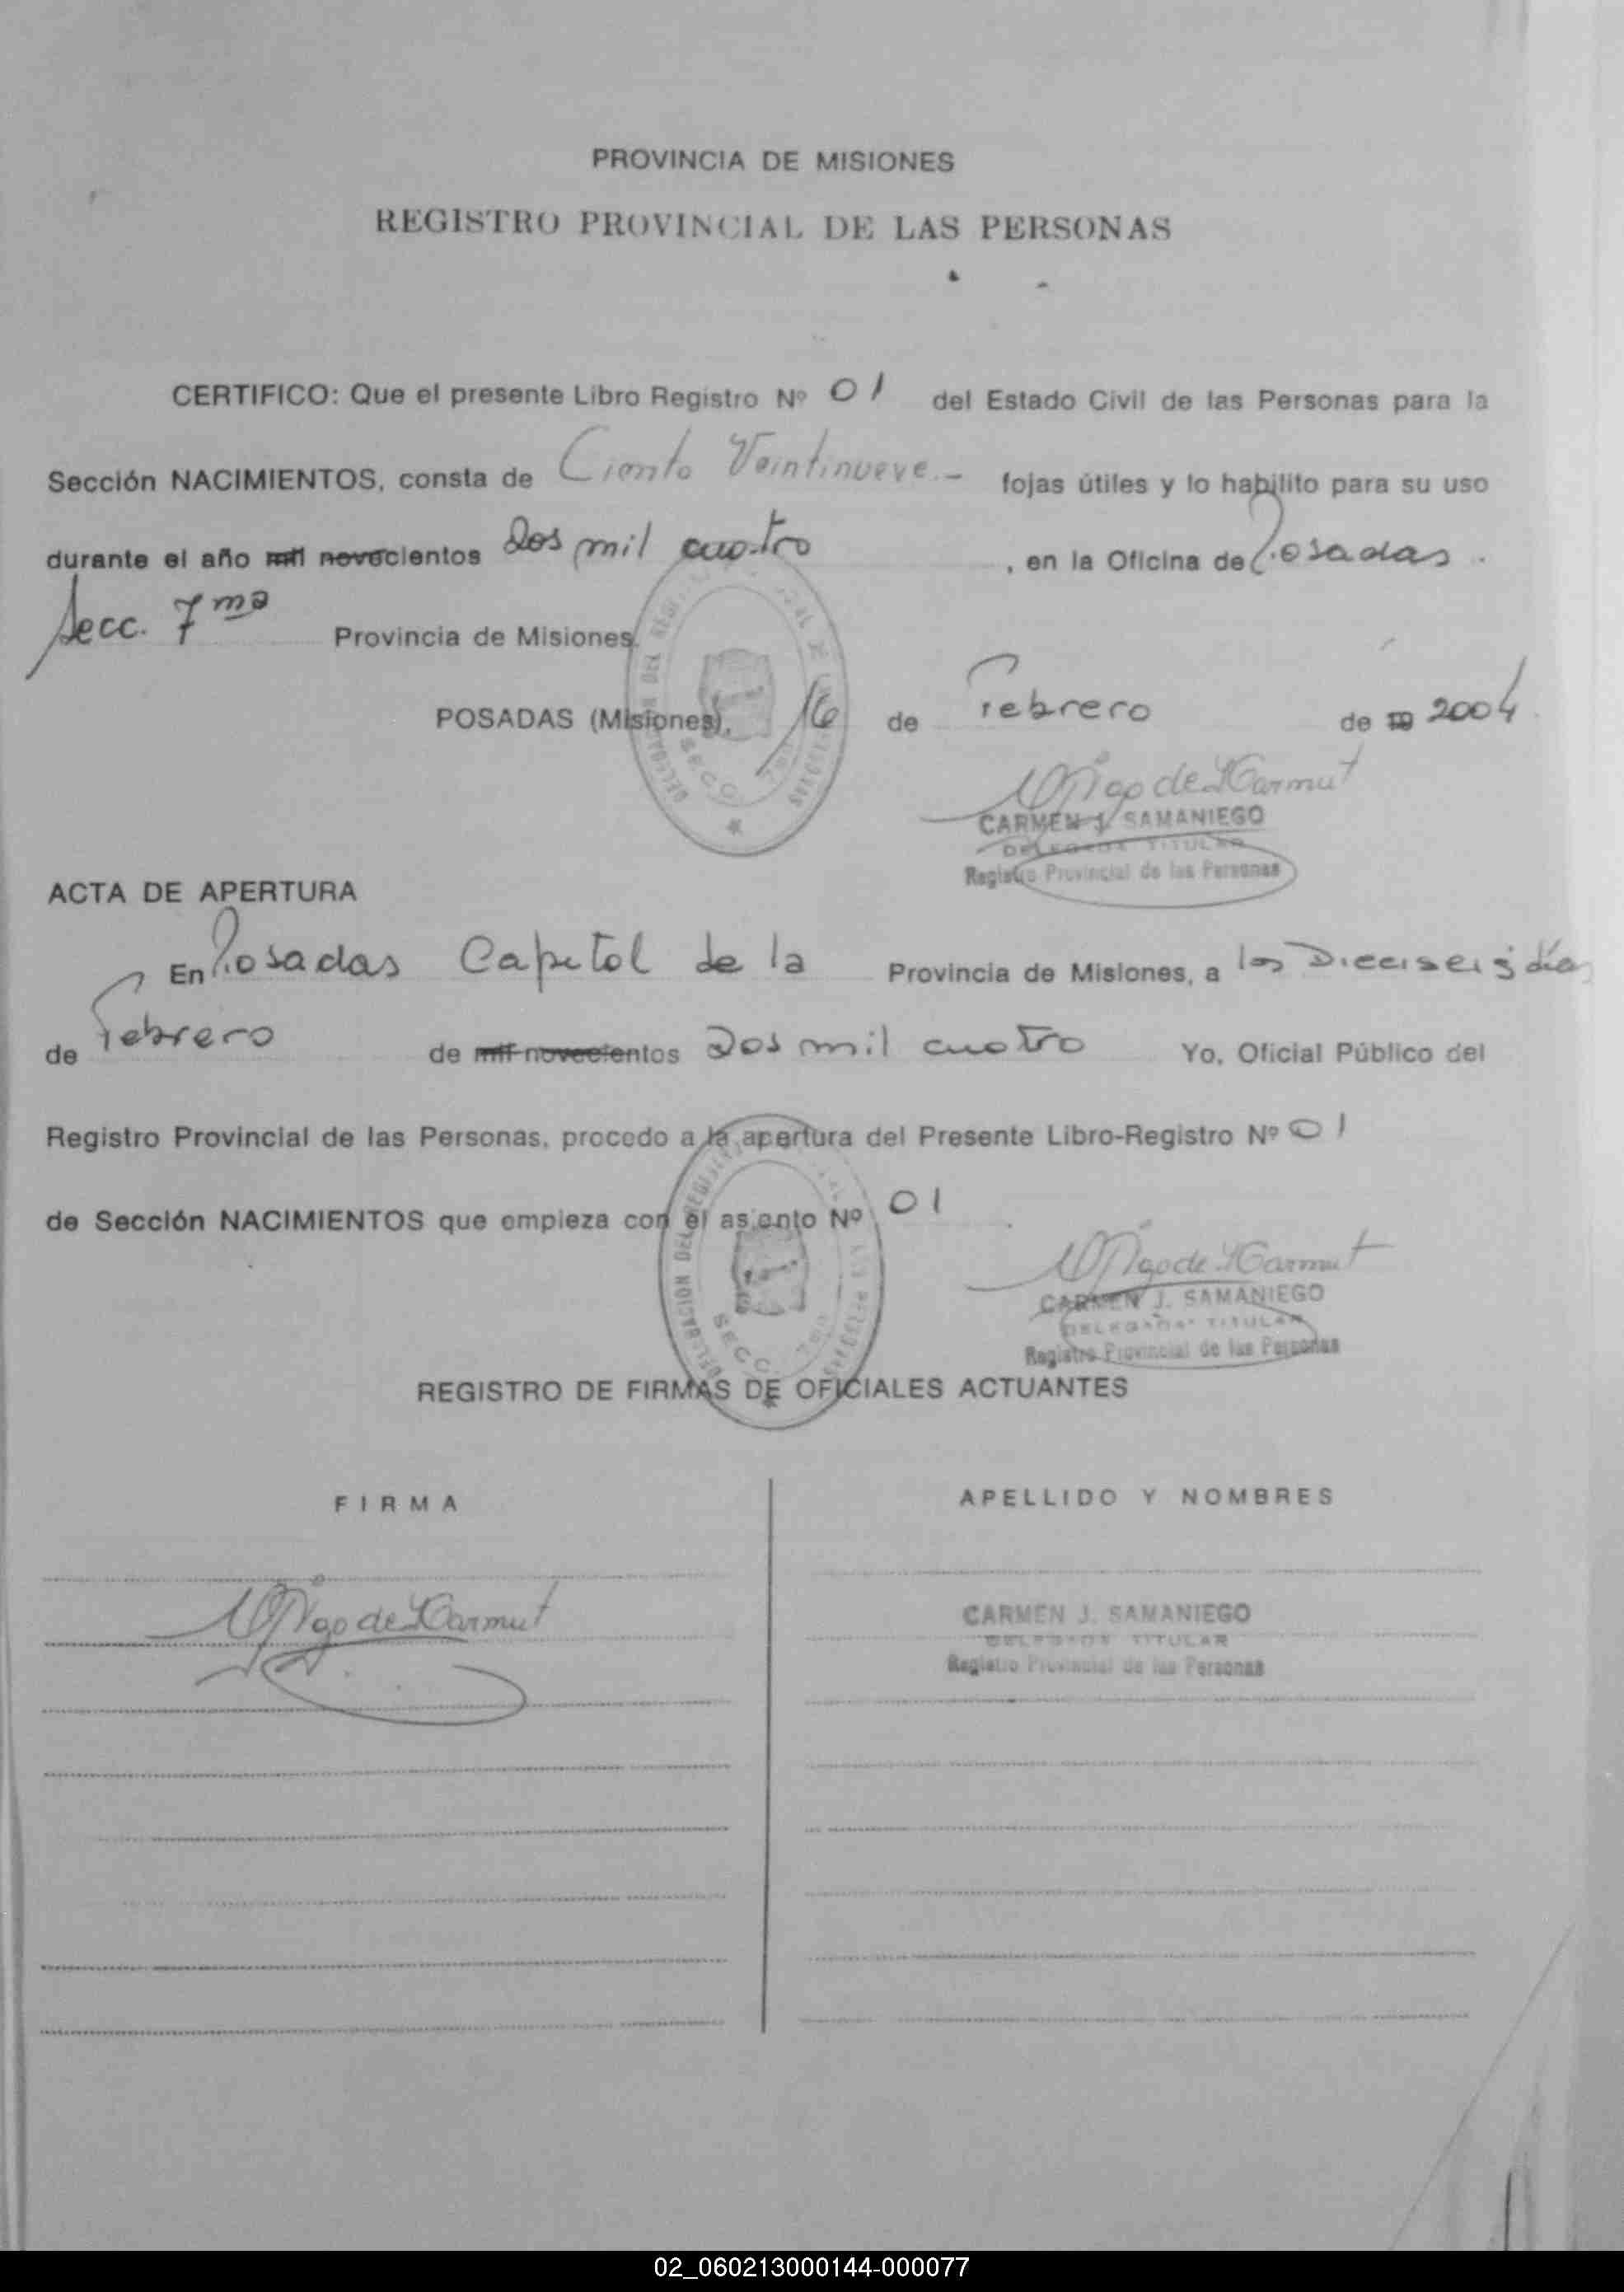 PROVINCIA DE MISIONES
REGISTRO PROVINCIAL DE LAS PERSONAS
CERTIFICO: Que el presente Libro Registro Nº 01 del Estado Civil de las Personas para la
Sección NACIMIENTOS, consta de Ciento Veintinueve.- fojas útiles y lo habilito para su uso
durante el año mil novecientos Dos mil cuatro, en la Oficina de Posadas.
Secc. 7ma Provincia de Misiones.
POSADAS (Misiones), 16 de Febrero de 2004
CARMEN J. SAMANIEGO
DELEGADA TITULAR
Registro Provincial de las Personas
ACTA DE APERTURA
En Posadas Capital de la Provincia de Misiones, a los Dieciseis días
de Febrero de mil novecientos Dos mil cuatro Yo, Oficial Público del
Registro Provincial de las Personas, procedo a la apertura del Presente Libro-Registro Nº 01
de Sección NACIMIENTOS que empieza con el asiento Nº 01
CARMEN J. SAMANIEGO
DELEGADA TITULAR
Registro Provincial de las Personas
REGISTRO DE FIRMAS DE OFICIALES ACTUANTES
FIRMA
APELLIDO Y NOMBRES
CARMEN J. SAMANIEGO
DELEGADA TITULAR
Registro Provincial de las Personas
02_060213000144-000077